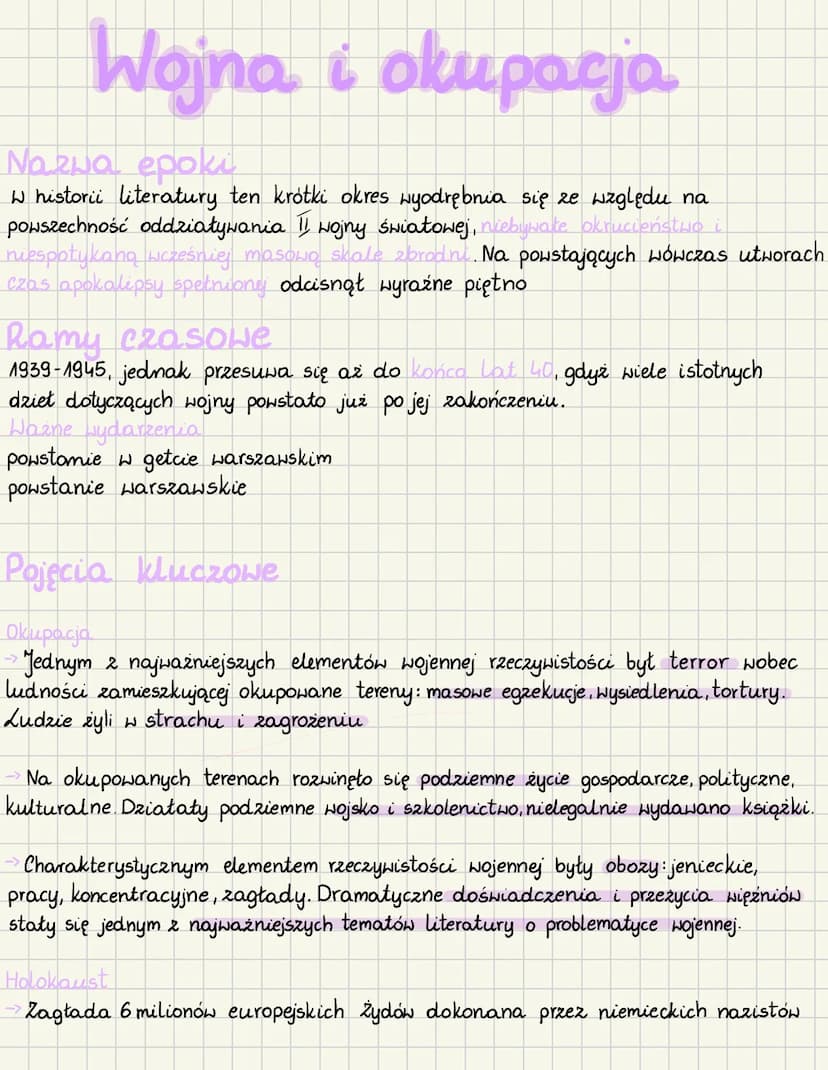 Wojna i okupacja
Nazwa epoki
w historii literatury ten krótki okres wyodrębnia się ze względu na
powszechność oddziaływania II wojny światowej, niebywałe okrucieństwo i
niespotykaną wcześniej masową skalę zbrodni. Na powstających wówczas utworach
czas apokalipsy spełnionej odcisnął wyraźne piętno
Ramy czasowe
1939-1945, jednak przesuwa się aż do końca lat 40, gdyż wiele istotnych
dzieł dotyczących wojny powstało już po jej zakończeniu.
Ważne wydarzenia
powstanie w getcie warszawskim
powstanie warszawskie
Pojęcia kluczowe
Okupacja
→ Jednym z najważniejszych elementów wojennej rzeczywistości był terror wobec
ludności zamieszkującej okupowane tereny: masowe egzekucje, wysiedlenia, tortury.
Ludzie żyli w strachu i zagrożeniu
→ Na okupowanych terenach rozwinęło się podziemne życie gospodarcze, polityczne,
kulturalne. Działały podziemne wojsko i szkolenictwo, nielegalnie wydawano książki.
→ Charakterystycznym elementem rzeczywistości wojennej były obozy: jenieckie,
pracy, koncentracyjne, zagłady. Dramatyczne doświadczenia i przeżycia więźniów
stały się jednym z najważniejszych tematów literatury o problematyce wojennej.
Holokaust
→ Zagłada 6 milionów europejskich Żydów dokonana przez niemieckich nazistów